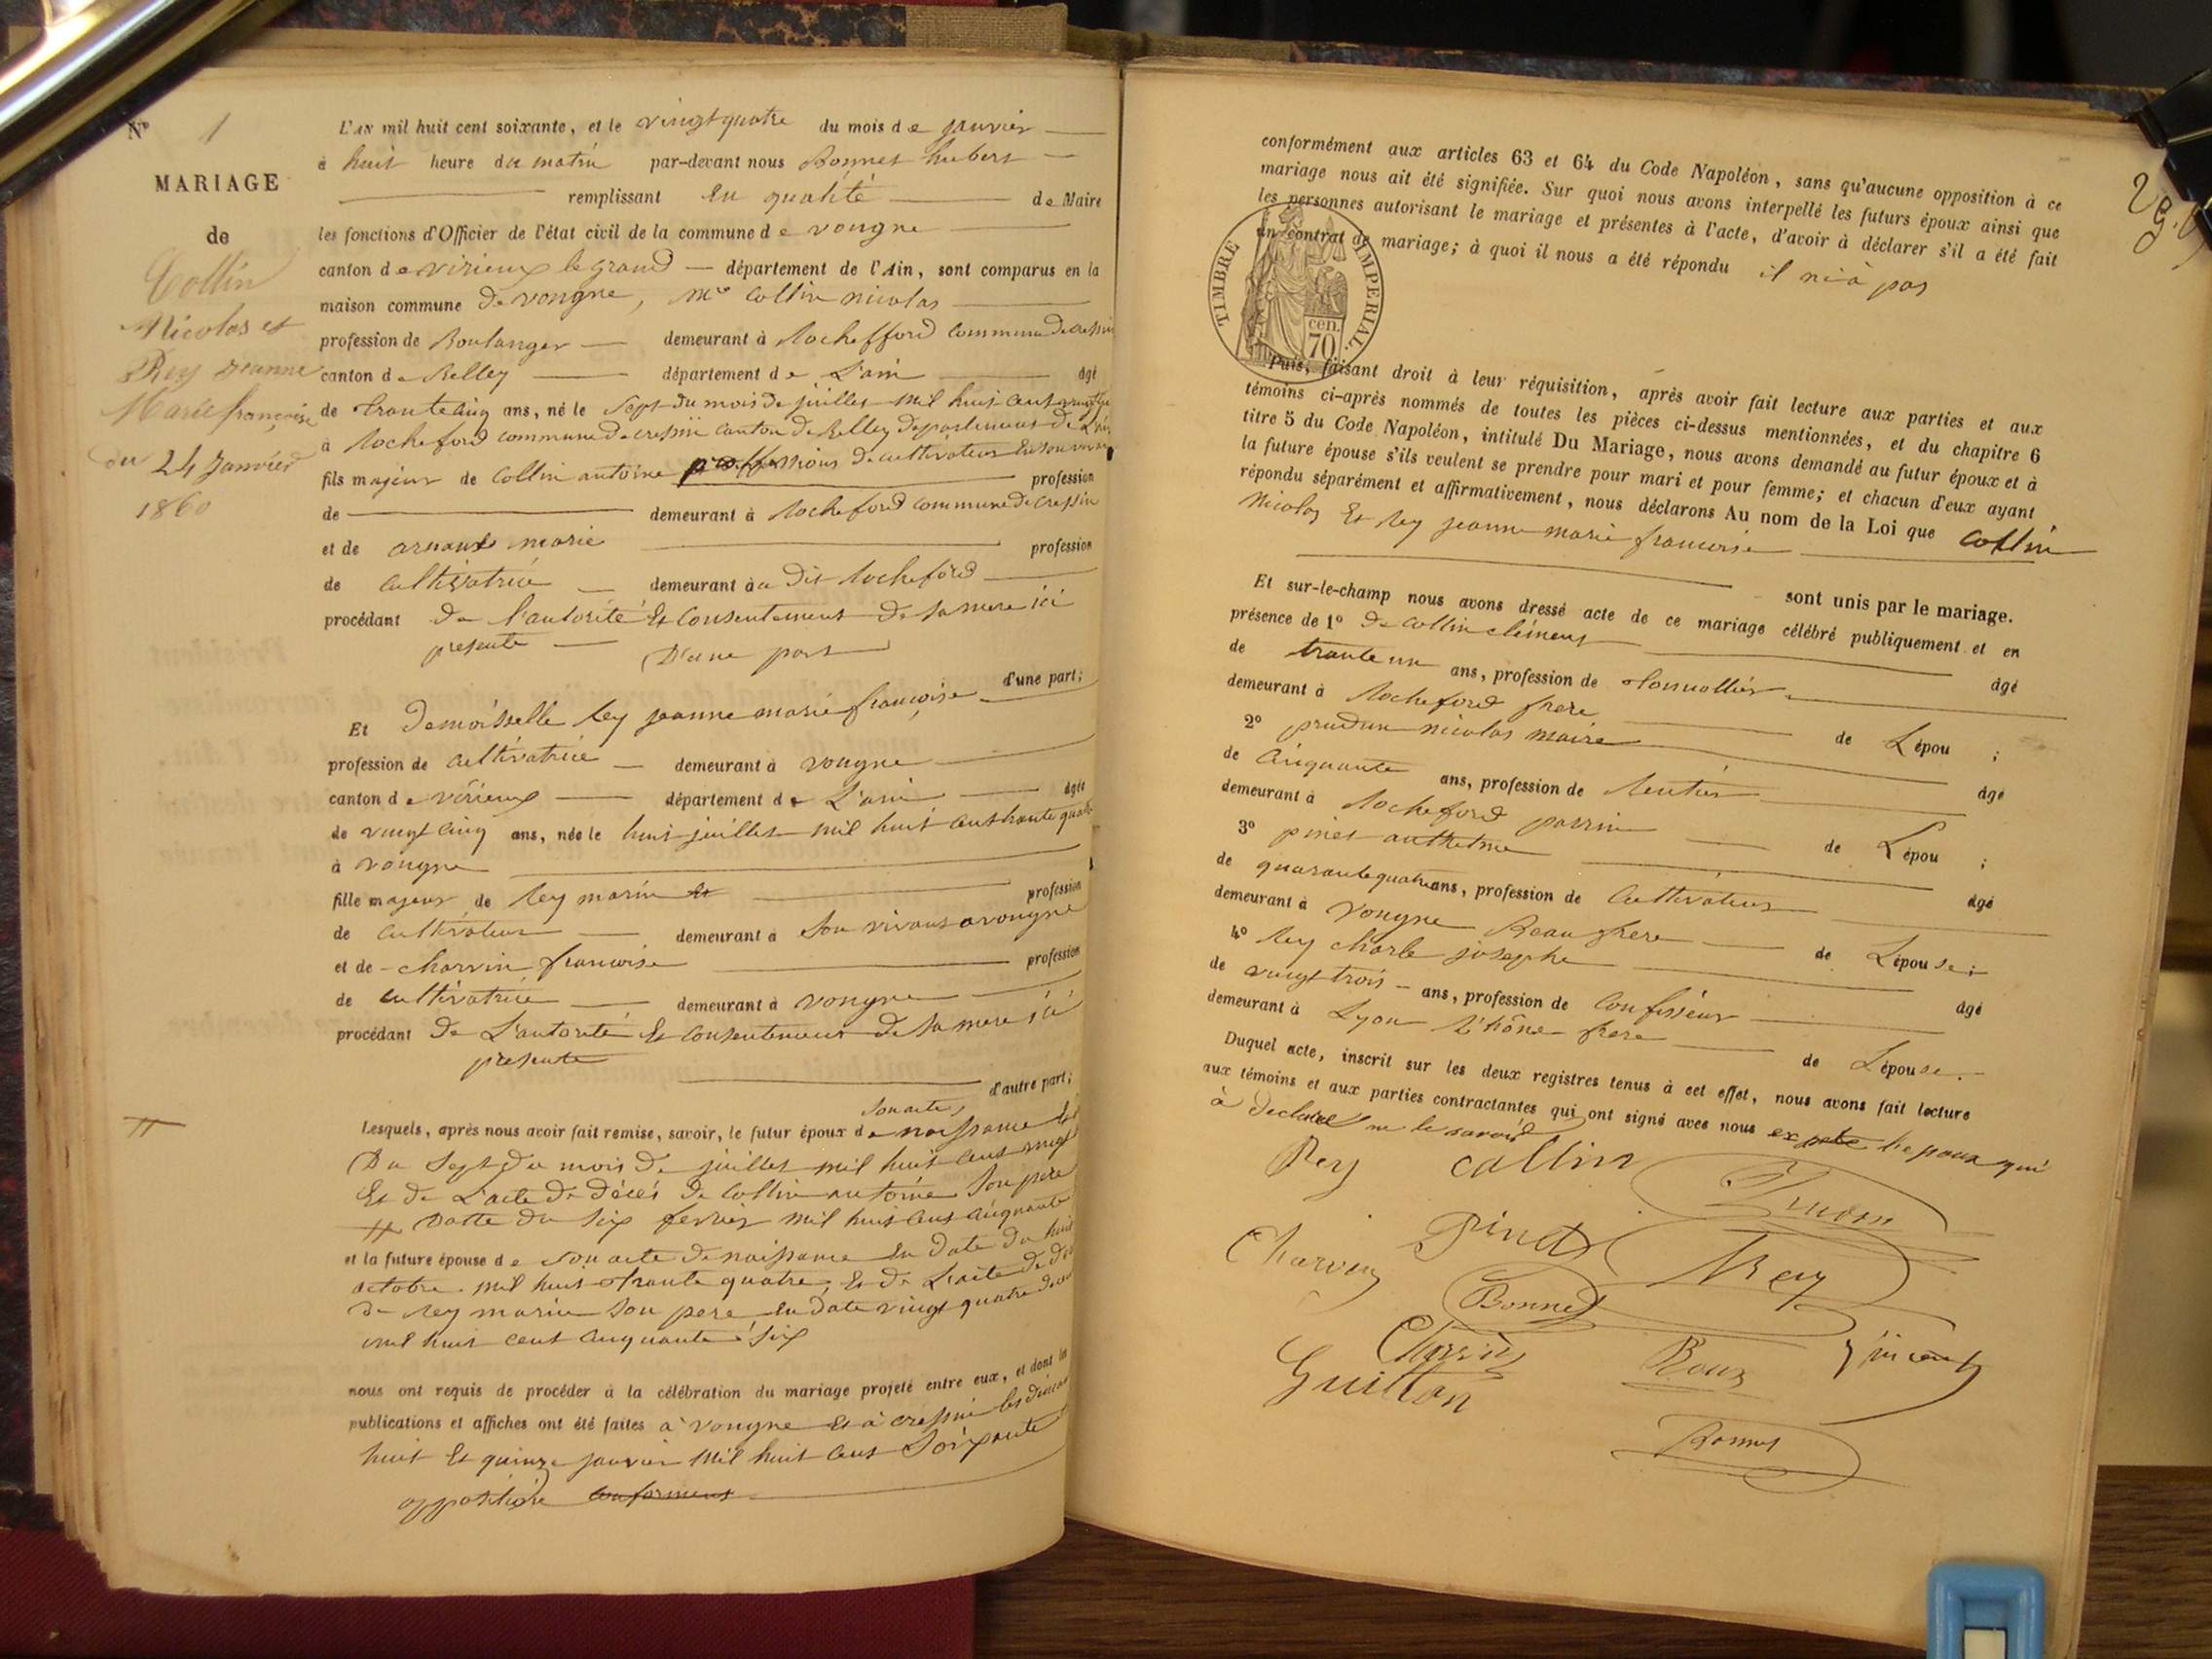 Nº 1
MARIAGE
de
Collin
Nicolas et
Rey Jeanne
Marie françoise
du 24 Janvier
1860
L'AN mil huit cent soixante, et le vingt quatre du mois de janvier
à huit heure du matin par-devant nous Bonnet hubert
remplissant en qualité de Maire
les fonctions d'Officier de l'état civil de la commune de vongne
canton de virieux le grand département de l'Ain, sont comparus en la
maison commune de vongne, mr collin nicolas
profession de Boulanger demeurant à Rochefford commune de cressin
canton de Belley département de L'ain âgé
de trante cinq ans, né le sept du mois de juillet mil huit cent vingt
à Rocheford commune de cressin canton de Belley departement de L'ain
fils majeur de collin antoine proffessions de cultivateur profession
de demeurant à Rocheford commune de cressin
et de arnaux marie profession
de cultivatrice demeurant à u dit Rocheford
procédant de l'autorité Et consentement de sa mere ici
presente D'une part
d'une part;
Et Demoisselle Rey jeanne marie françoise
profession de cultivatrice demeurant à vongne
canton de virieux département de L'ain âgée
de vingt cinq ans, née le huit juillet mil huit cent trante quatre
à vongne
fille majeur de Rey marin et profession
de cultivateur demeurant à son vivant a vongne
et de charvin francoise profession
de cultivatrice demeurant à vongne
procédant de L'autorité Et consentement de sa mere ici
presente
d'autre part;
son acte,
Lesquels, après nous avoir fait remise, savoir, le futur époux de naissance
Du Sept du mois de juillet mil huit cent vingt
Et de L'acte de décès de Collin antoine son pere
Datte du six fevrier mil huit cent cinquante
et la future épouse de son acte de naissance en date du huit
octobre mil huit trante quatre, Et de L'acte de
de Rey marin son pere en date vingt quatre
mil huit cent cinquante six
nous ont requis de procéder à la célébration du mariage projeté entre eux, et dont les
publications et affiches ont été faites à vongne Et à cressin les
huit Et quinze janvier mil huit cent soixante
opposition conforment
conformément aux articles 63 et 64 du Code Napoléon, sans qu'aucune opposition à ce
mariage nous ait été signifiée. Sur quoi nous avons interpellé les futurs époux ainsi que
les personnes autorisant le mariage et présentes à l'acte, d'avoir à déclarer s'il a été fait
un contrat de mariage; à quoi il nous a été répondu il ni à pas
TIMBRE IMPERIAL
cen.
70
Puis, faisant droit à leur réquisition, après avoir fait lecture aux parties et aux
témoins ci-après nommés de toutes les pièces ci-dessus mentionnées, et du chapitre 6
titre 5 du Code Napoléon, intitulé Du Mariage, nous avons demandé au futur époux et à
la future épouse s'ils veulent se prendre pour mari et pour femme; et chacun d'eux ayant
répondu séparément et affirmativement, nous déclarons Au nom de la Loi que collin
Nicolas Et Rey jeanne marie francoise
sont unis par le mariage.
Et sur-le-champ nous avons dressé acte de ce mariage célébré publiquement et en
présence de 1º de collin clément âgé
de trante un ans, profession de tonnellier
demeurant à Rocheford frere de L'épou ;
2º prudun nicolas maire âgé
de cinquante ans, profession de Rentier
demeurant à Rocheford parrin de L'épou ;
3º pinet anthelme âgé
de quarante quatre ans, profession de Cultivateur
demeurant à vongne Beau frere de L'épouse;
4º Rey charle josephe âgé
de vingt trois ans, profession de Confisseur
demeurant à Lyon Rhône frere de L'épouse.
Duquel acte, inscrit sur les deux registres tenus à cet effet, nous avons fait lecture
aux témoins et aux parties contractantes qui ont signé avec nous L'epoux qui
à declaré ne le savoir
Rey collin
Charvin Pinet Rey
Bonnet
Charvin Roux
Guitton
Bonnet